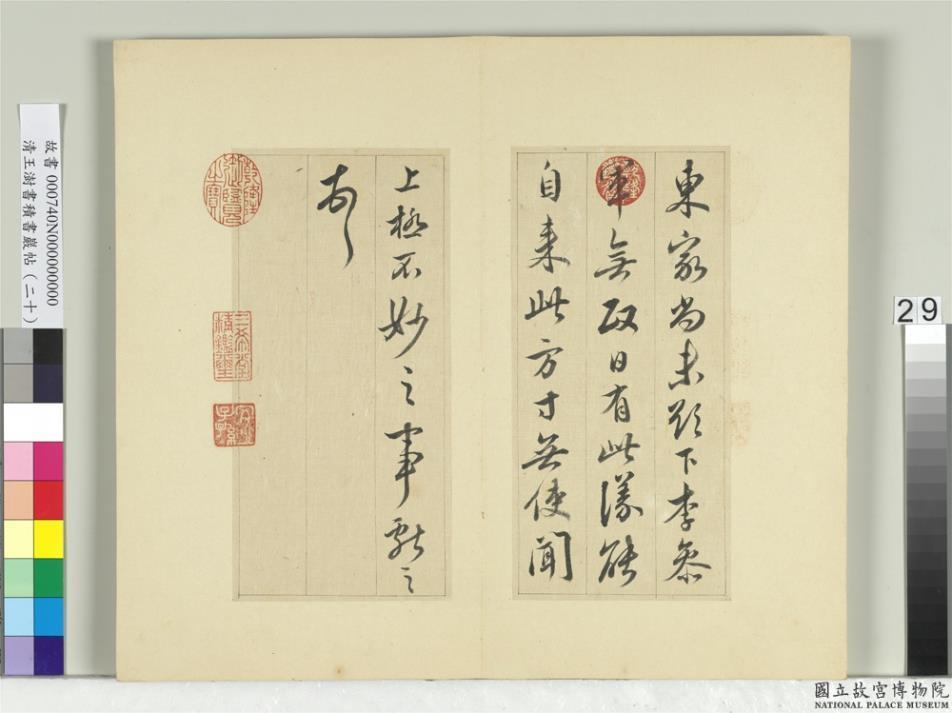 東家尚未歇下李參
軍無政日有此議能
自來此方寸無使聞
上極不妙之事獻之
故書 000740N000000000
清王澍書積書巖帖（二十）
29
國立故宮博物院
NATIONAL PALACE MUSEUM